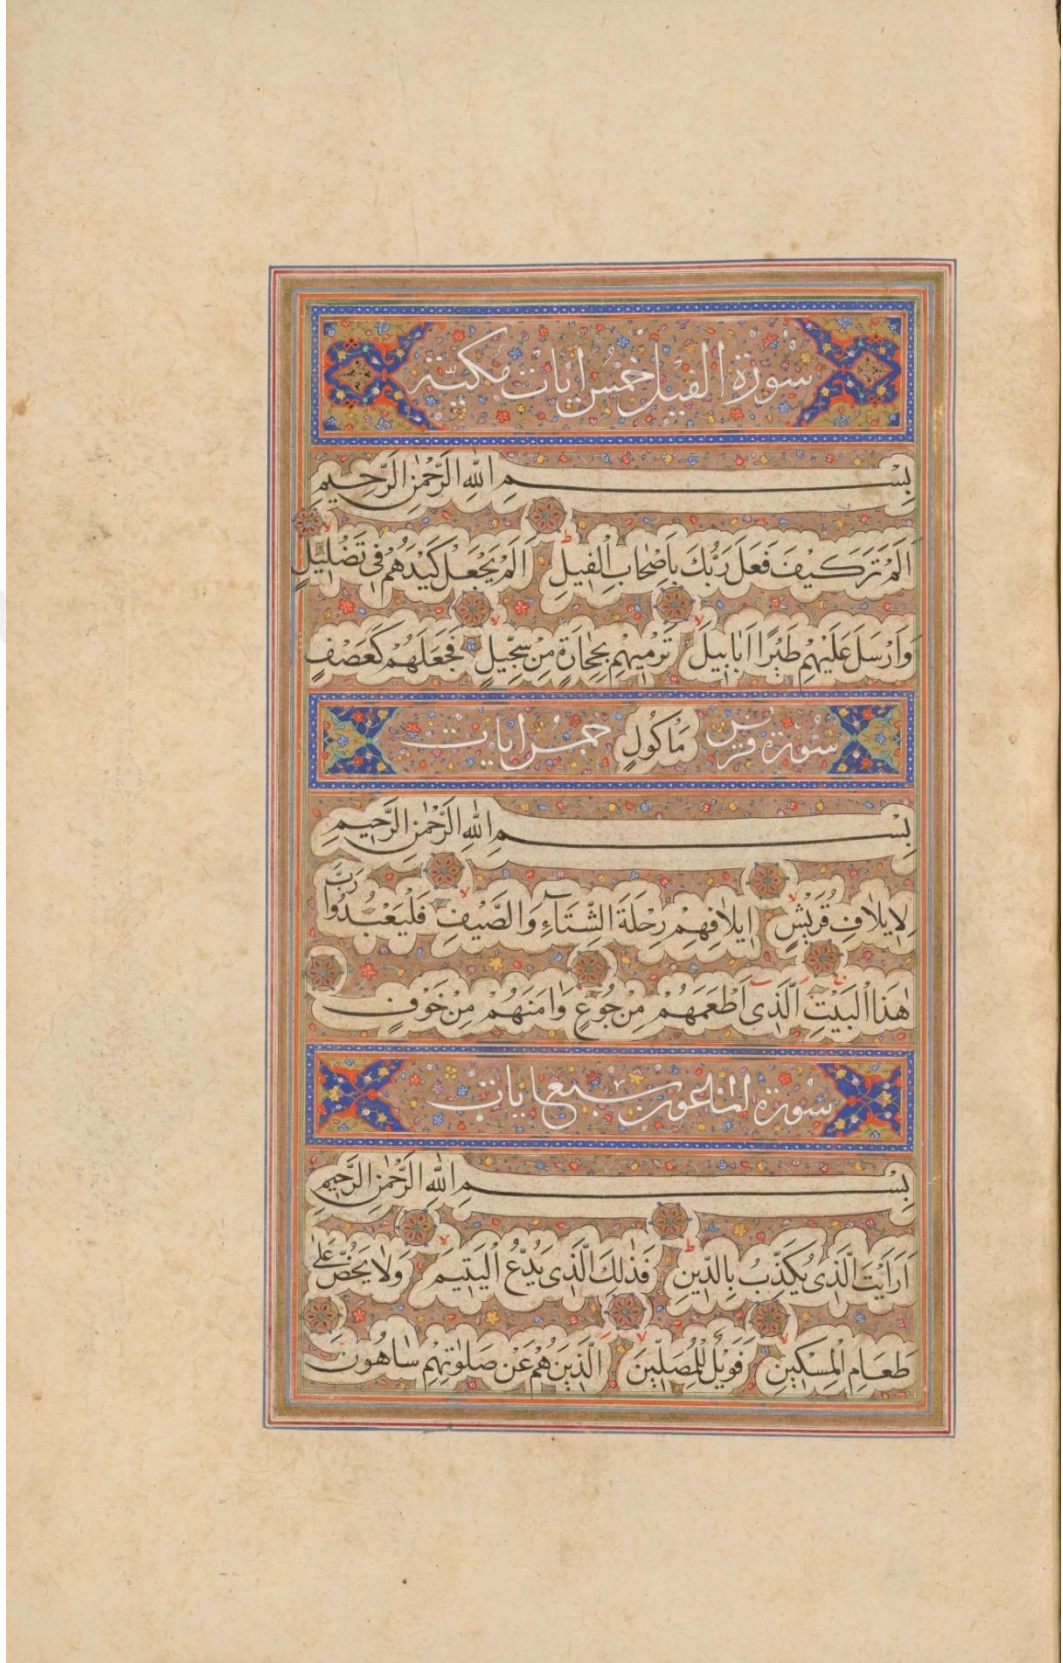 سورة الفيل خمس ايات مكية
بِسْمِ اللّٰهِ الرَّحْمٰنِ الرَّحِيمِ
اَلَمْ تَرَ كَيْفَ فَعَلَ رَبُّكَ بِاَصْحَابِ الْفِيلِ اَلَمْ يَجْعَلْ كَيْدَهُمْ فِى تَضْلِيلٍ
وَاَرْسَلَ عَلَيْهِمْ طَيْرًا اَبَابِيلَ تَرْمِيهِمْ بِحِجَارَةٍ مِنْ سِجِّيلٍ فَجَعَلَهُمْ كَعَصْفٍ
سورة قريش مَاْكُولٍ خمس ايات
بِسْمِ اللّٰهِ الرَّحْمٰنِ الرَّحِيمِ
لِايلَافِ قُرَيْشٍ ايلَافِهِمْ رِحْلَةَ الشِّتَاۤءِ وَالصَّيْفِ فَلْيَعْبُدُوا رَبَّ
هٰذَا الْبَيْتِ اَلَّذِى اَطْعَمَهُمْ مِنْ جُوعٍ وَاٰمَنَهُمْ مِنْ خَوْفٍ
سورة الماعون سبع ايات
بِسْمِ اللّٰهِ الرَّحْمٰنِ الرَّحِيمِ
اَرَاَيْتَ الَّذِى يُكَذِّبُ بِالدِّينِ فَذٰلِكَ الَّذِى يَدُعُّ الْيَتِيمَ وَلَا يَحُضُّ عَلٰى
طَعَامِ الْمِسْكِينِ فَوَيْلٌ لِلْمُصَلِّينَ اَلَّذِينَ هُمْ عَنْ صَلٰوتِهِمْ سَاهُونَ